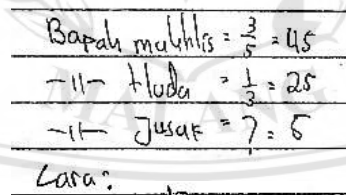 Bapah mukhlis = 3/5 = 45
-11- Huda = 1/3 = 25
-11- Jusak = ? = 5
Cara:
MALANG